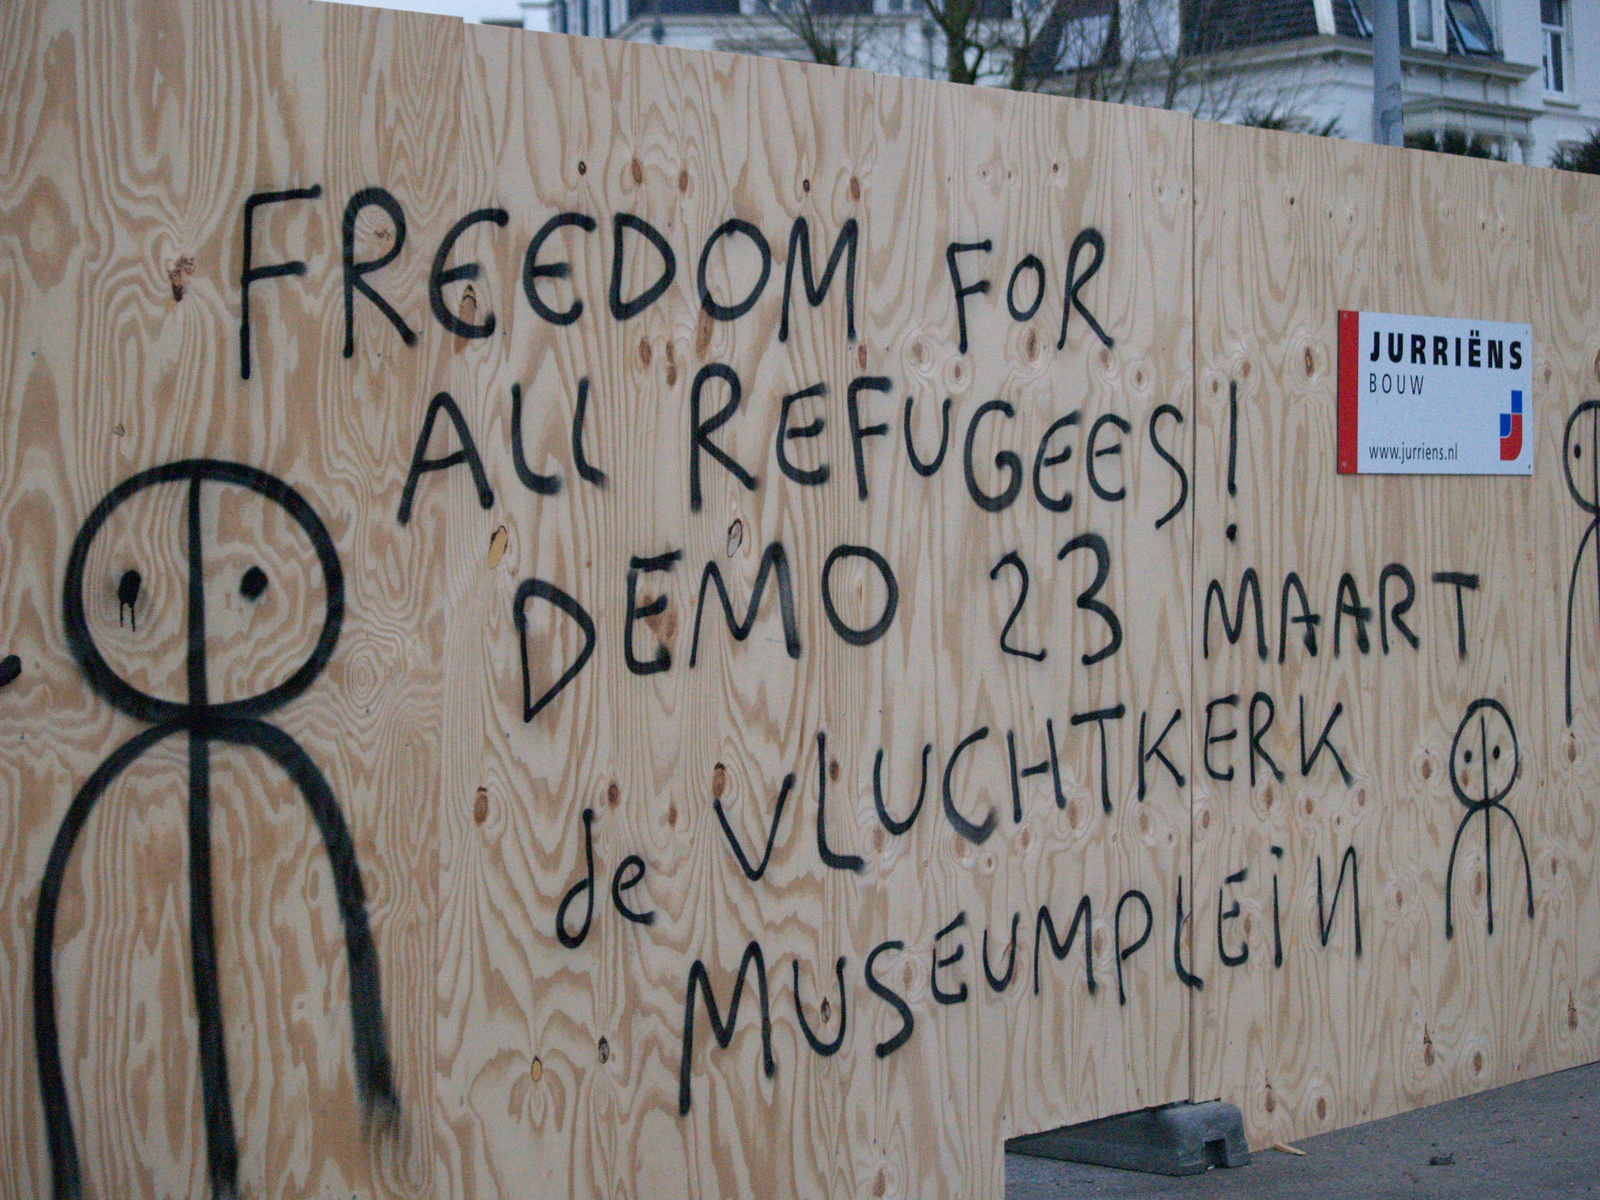 FREEDOM FOR
ALL REFUGEES!
DEMO 23 MAART
de VLUCHTKERK
MUSEUMPLEIN
JURRIËNS
BOUW
www.jurriens.nl